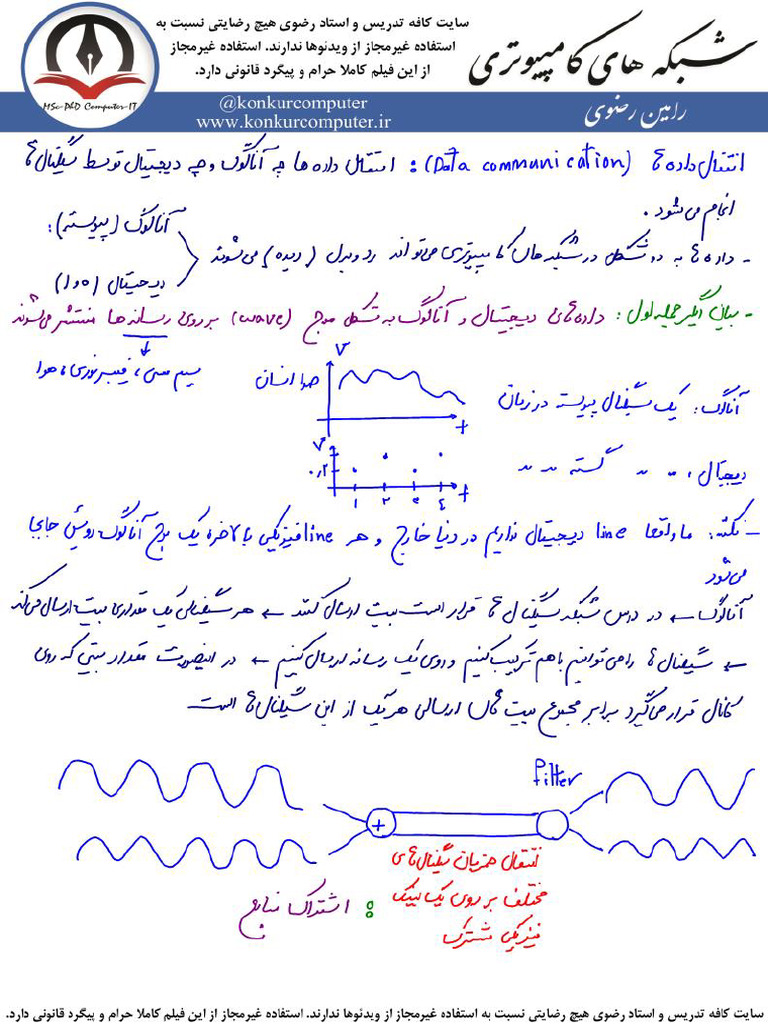 سایت کافه تدریس و استاد رضوی هیچ رضایتی نسبت به
استفاده غیرمجاز از ویدئوها ندارند. استفاده غیرمجاز
از این فیلم کاملا حرام و پیگرد قانونی دارد.
شبکه های کامپیوتری
MSc-PhD Computer-IT
@konkurcomputer
رامین رضوی
www.konkurcomputer.ir
انتقال داده ها (Data communication) : انتقال داده ها چه آنالوگ و چه دیجیتال توسط سیگنال ها
انجام می شود .
آنالوگ (پیوسته) :
- داده ها به دو شکل در شبکه های کامپیوتری می تواند رد و بدل (دیده) می شوند
دیجیتال (0 و 1)
- بیان دیگر جمله اول : داده های دیجیتال و آنالوگ به شکل موج (wave) بر روی رسانه ها منتشر می شوند
سیم مسی ، فیبر نوری ، هوا
V
صدا انسان
آنالوگ : یک سیگنال پیوسته در زمان
t
V
دیجیتال : " " گسسته " "
۰,۲
۱ ۲ ۳ ۴ t
- نکته : ما واقعا line دیجیتال نداریم در دنیا خارج و هر line فیزیکی بالاخره یک موج آنالوگ روش جابجا
می شود
آنالوگ ← در درس شبکه سیگنال ها قرار است بیت ارسال کنند ← هر سیگنالی یک مقداری بیت ارسال می کند
← سیگنال ها را می توانیم با هم ترکیب کنیم و روی یک رسانه ارسال کنیم ← در اینصورت مقدار بیتی که روی
کانال قرار می گیرد برابر مجموع بیت های ارسالی هر یک از این سیگنال ها است
filter
+
انتقال همزمان سیگنال های
مختلف بر روی یک لینک
فیزیکی مشترک
: اشتراک منابع
سایت کافه تدریس و استاد رضوی هیچ رضایتی نسبت به استفاده غیرمجاز از ویدئوها ندارند. استفاده غیرمجاز از این فیلم کاملا حرام و پیگرد قانونی دارد.